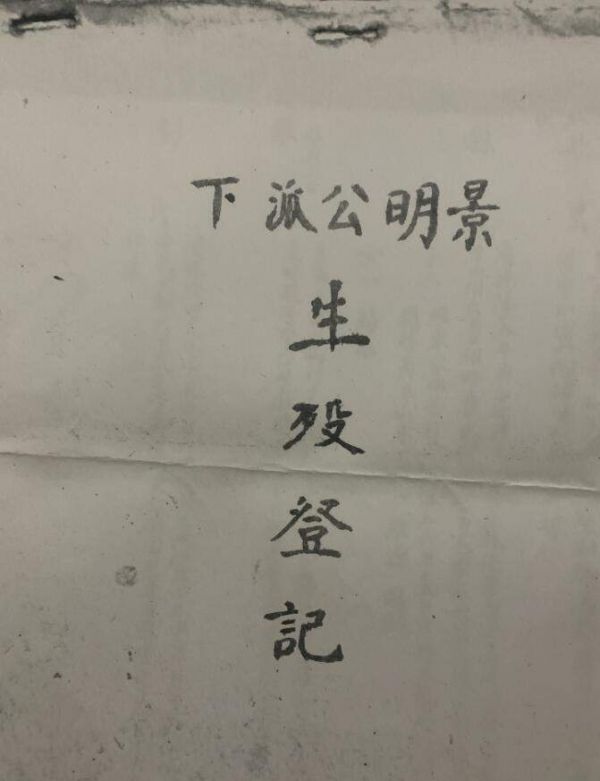 景明公派下
生歿登記